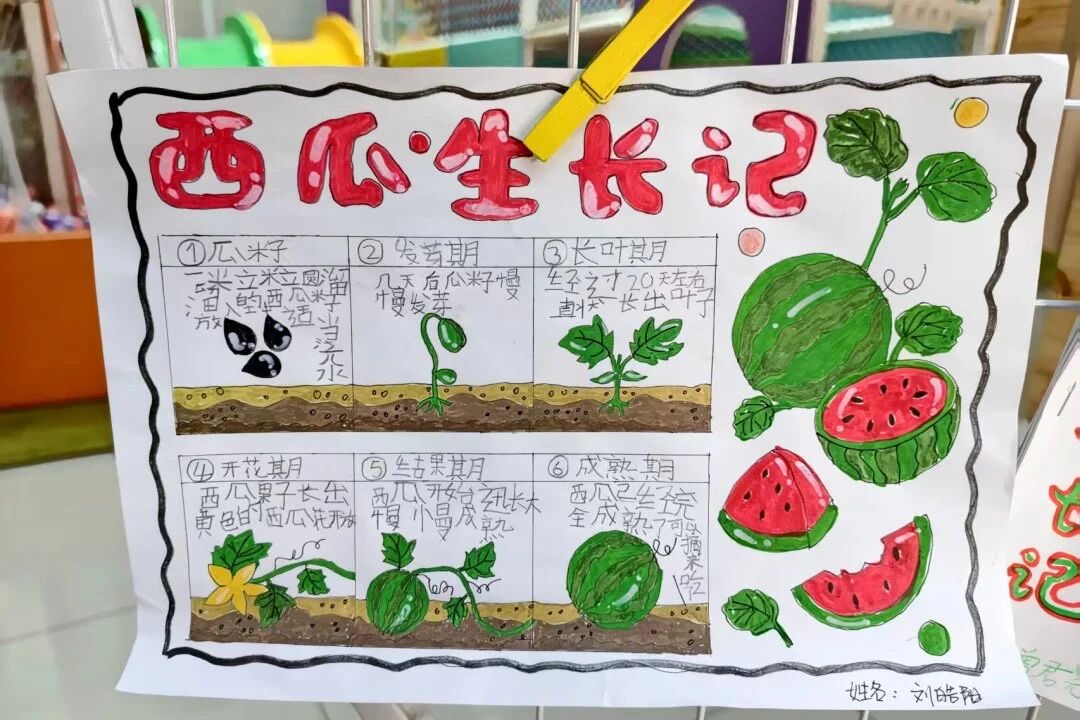 西瓜生长记
①瓜米子
一粒粒圆溜
溜的西瓜米子
放入 适
当
水
② 发芽期
几天后瓜米籽慢
慢发芽
③长叶其月
经过20天左右
直 长出叶子
④开花期
西瓜果子长出
黄色的西瓜花开放
⑤结果期
西瓜 长大
慢慢成熟
⑥成熟期
西瓜已经完
全成熟了可以
摘
来
吃
姓名：刘皓阳
记